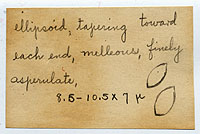 ellipsoid, tapering toward
each end, melleous, finely
asperulate,
8.5-10.5 x 7 µ